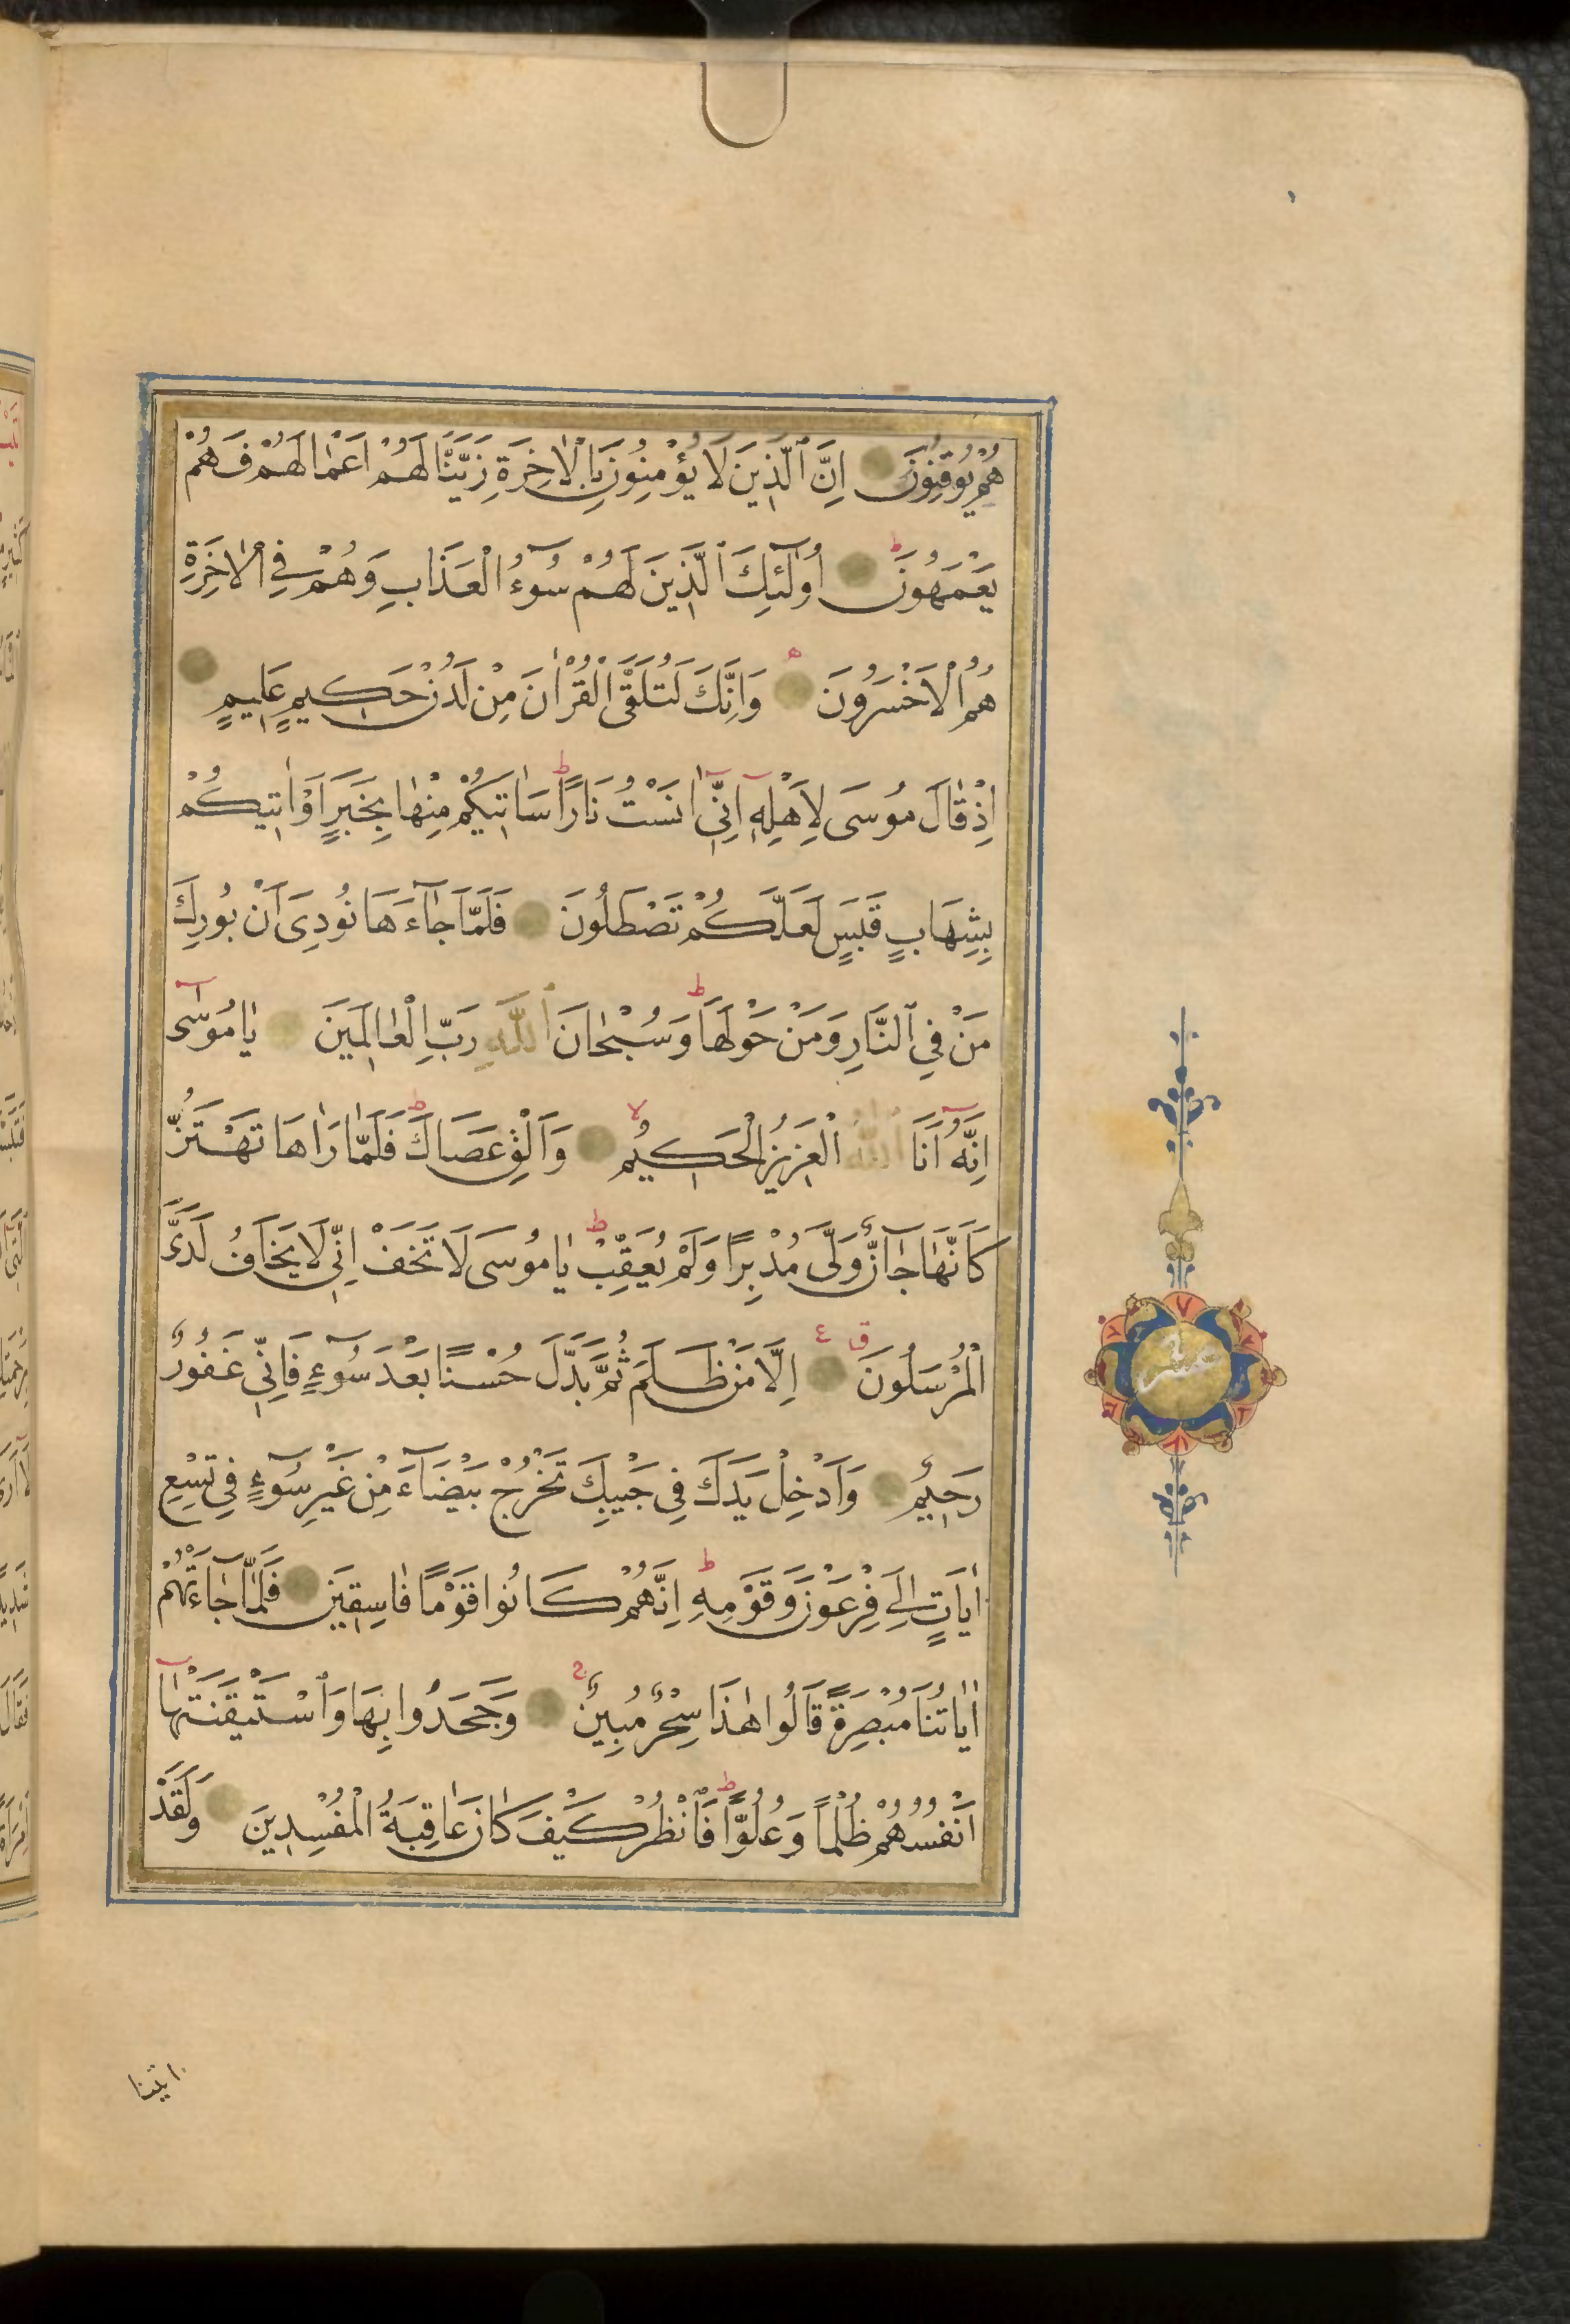 هُمْ يُوقِنُونَ اِنَّ ٱلَّذِينَ لَا يُؤْمِنُونَ بِالْاٰخِرَةِ زَيَّنَّا لَهُمْ اَعْمَالَهُمْ فَهُمْ
يَعْمَهُونَ ط اُولٰٓئِكَ ٱلَّذِينَ لَهُمْ سُوٓءُ الْعَذَابِ وَهُمْ فِي الْاٰخِرَةِ
هُمُ الْاَخْسَرُونَ ه وَاِنَّكَ لَتُلَقَّى الْقُرْاٰنَ مِنْ لَدُنْ حَكِيمٍ عَلِيمٍ
اِذْ قَالَ مُوسَى لِاَهْلِهٖٓ اِنِّيٓ اٰنَسْتُ نَارًا ط سَاٰتِيكُمْ مِنْهَا بِخَبَرٍ اَوْ اٰتِيكُمْ
بِشِهَابٍ قَبَسٍ لَعَلَّكُمْ تَصْطَلُونَ فَلَمَّا جَآءَهَا نُودِيَ اَنْ بُورِكَ
مَنْ فِي ٱلنَّارِ وَمَنْ حَوْلَهَا ط وَسُبْحَانَ ٱللّٰهِ رَبِّ الْعَالَمِينَ يَامُوسٰٓى
اِنَّهُٓ اَنَا ٱللّٰهُ الْعَزِيزُ الْحَكِيمُ لا وَاَلْقِ عَصَاكَ ط فَلَمَّا رَاٰهَا تَهْتَزُّ
كَاَنَّهَا جَآنٌّ وَلَّى مُدْبِرًا وَلَمْ يُعَقِّبْ ط يَامُوسَى لَا تَخَفْ اِنِّي لَا يَخَافُ لَدَيَّ
الْمُرْسَلُونَ ق ع اِلَّا مَنْ ظَلَمَ ثُمَّ بَدَّلَ حُسْنًا بَعْدَ سُوٓءٍ فَاِنِّي غَفُورٌ
عشر
رَحِيمٌ وَاَدْخِلْ يَدَكَ فِي جَيْبِكَ تَخْرُجْ بَيْضَآءَ مِنْ غَيْرِ سُوٓءٍ فِي تِسْعِ
اٰيَاتٍ اِلَى فِرْعَوْنَ وَقَوْمِهِ ط اِنَّهُمْ كَانُوا قَوْمًا فَاسِقِينَ فَلَمَّا جَآءَتْهُمْ
اٰيَاتُنَا مُبْصِرَةً قَالُوا هٰذَا سِحْرٌ مُبِينٌ وَجَحَدُوا بِهَا وَٱسْتَيْقَنَتْهَآ
اَنْفُسُهُمْ ظُلْمًا وَعُلُوًّا ط فَانْظُرْ كَيْفَ كَانَ عَاقِبَةُ الْمُفْسِدِينَ وَلَقَدْ
اٰتينا